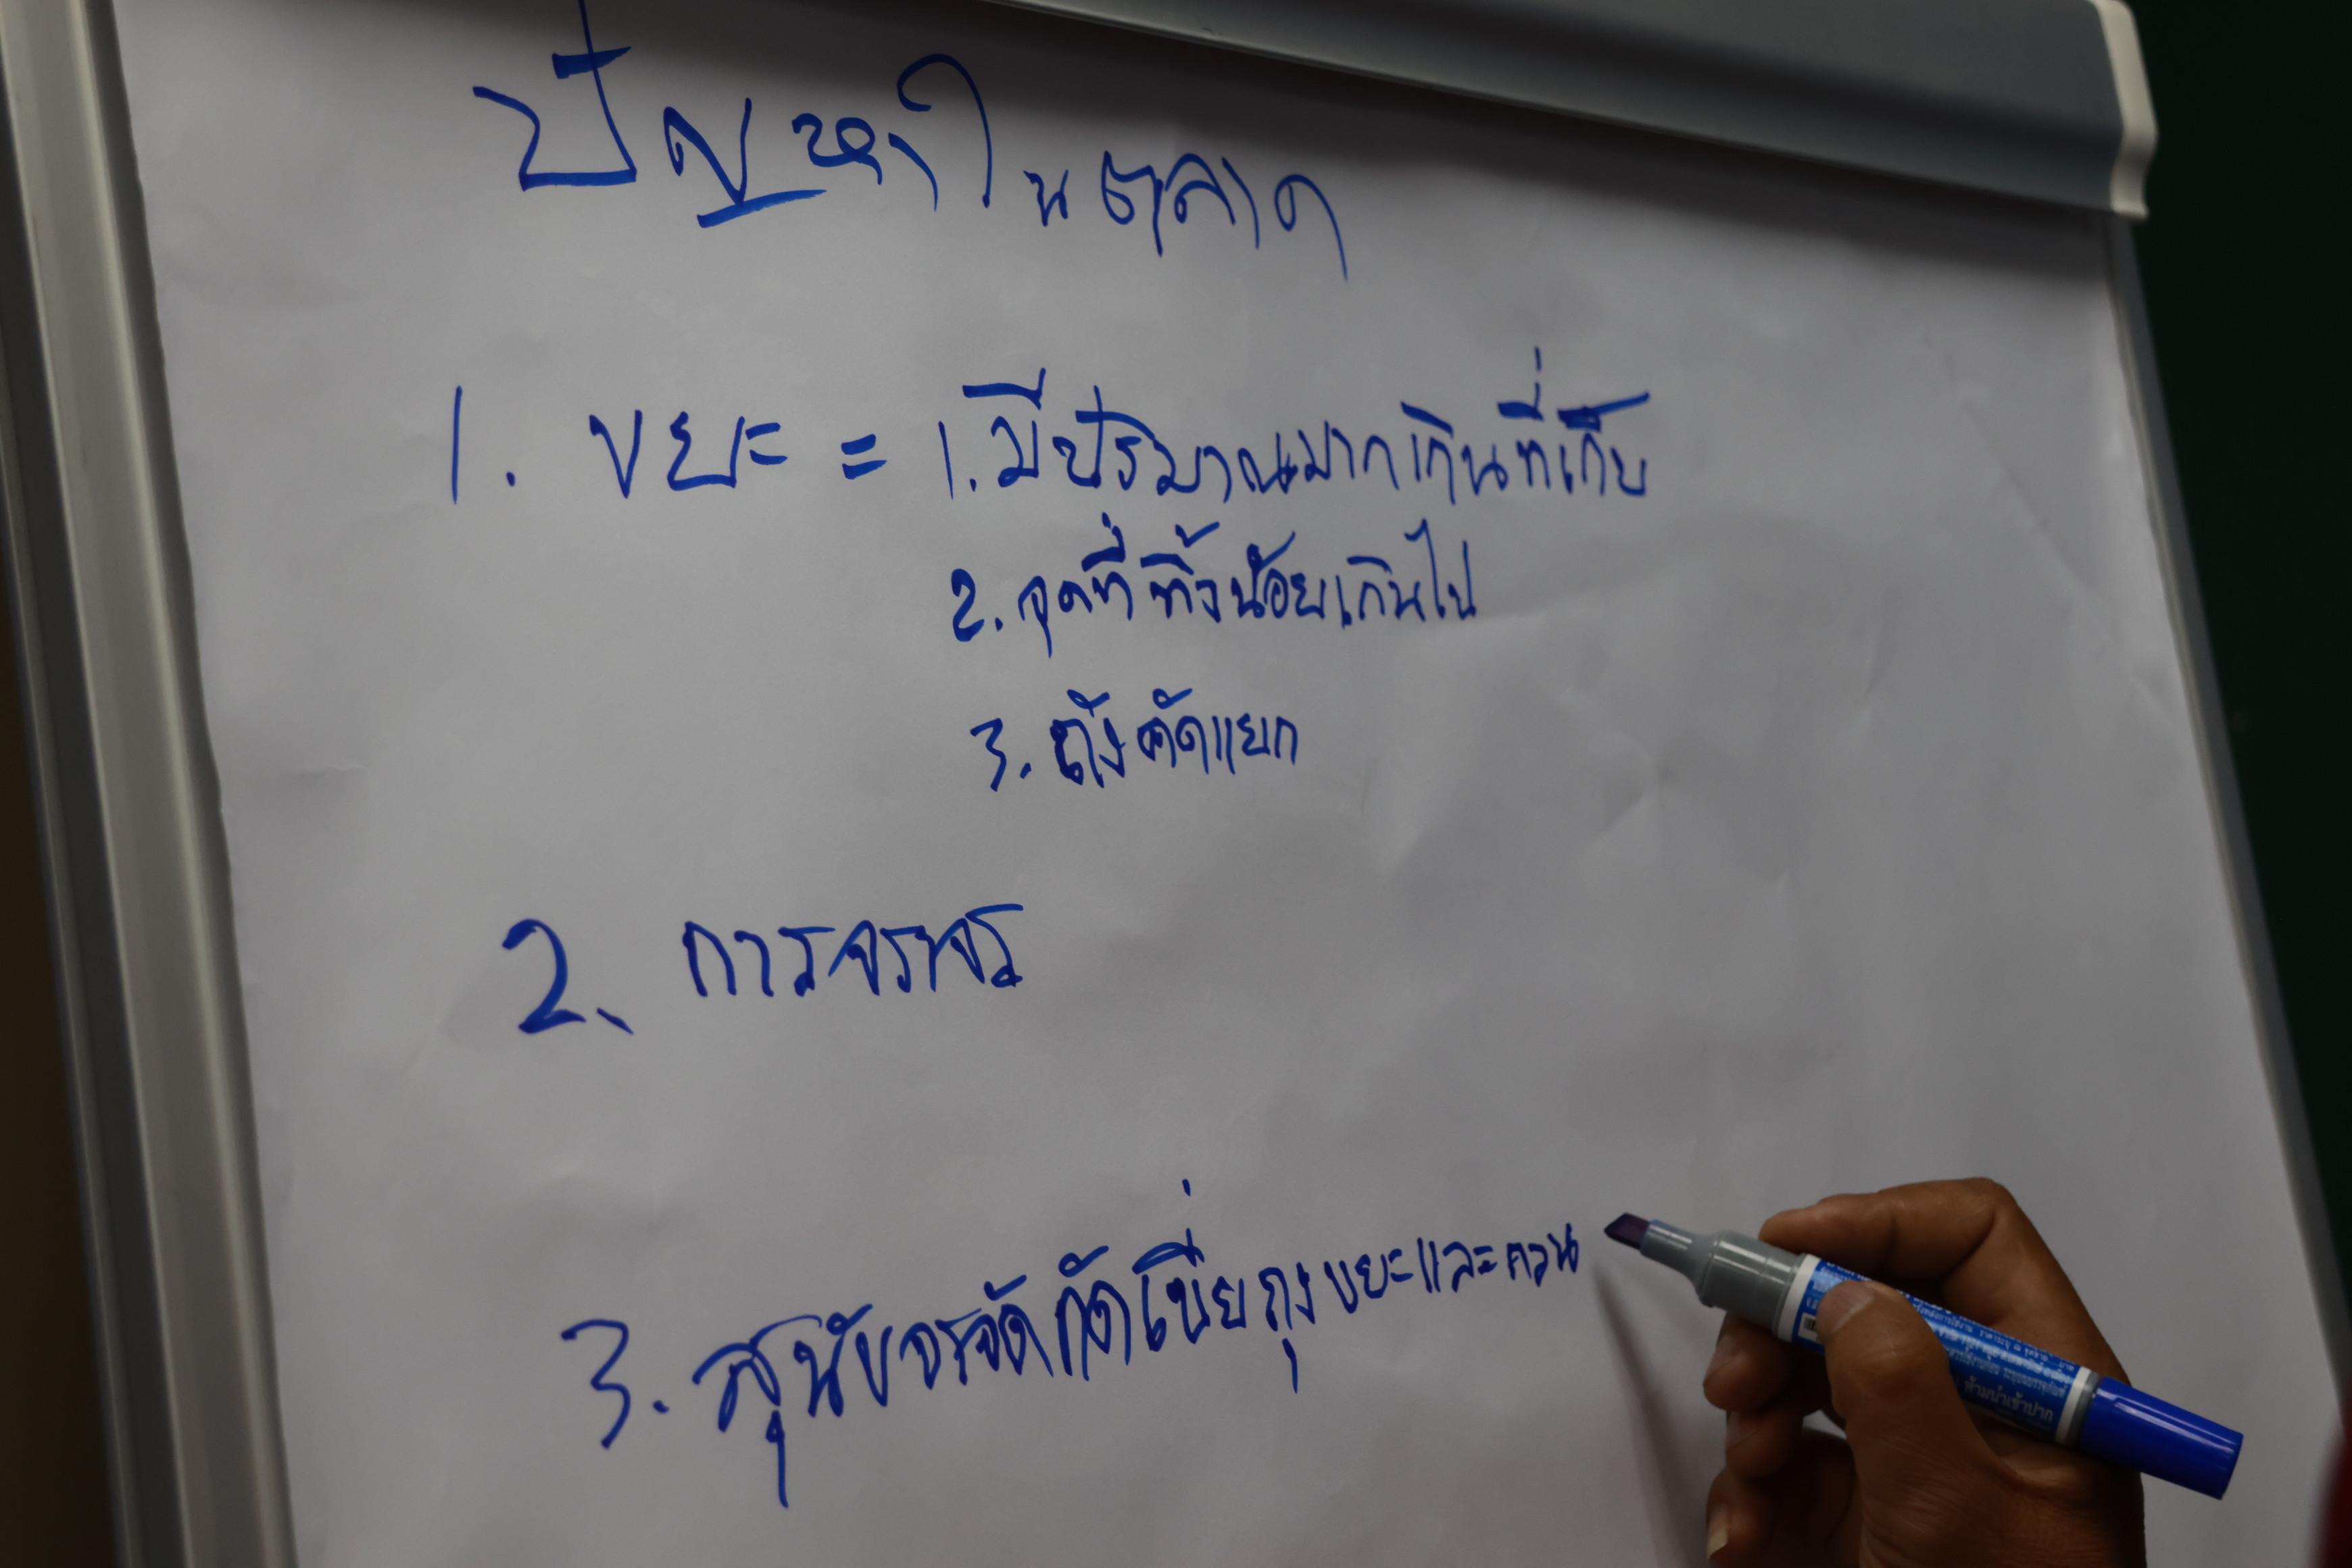 ปัญหาในตลาด
1. ขยะ = 1. มีปริมาณมากเกินที่เก็บ
2. จุดที่ทิ้งน้อยเกินไป
3. ถังคัดแยก
2. การจราจร
3. สุนัขจรจัดกัดเขี่ยถุงขยะและกวน
ห้ามนำเข้าปาก